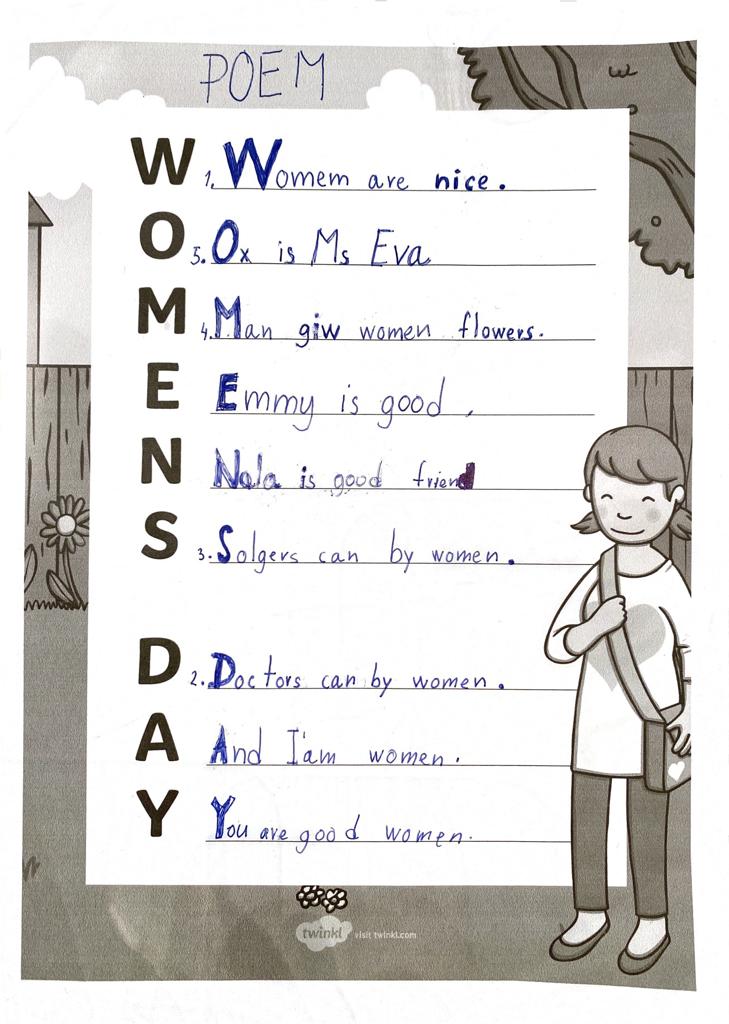 POEM
W 1. Womem are nice.
O 5. Ox is Ms Eva
M 4. Man giw women flowers.
E Emmy is good.
N Nala is good friend
S 3. Solgers can by women.
D 2. Doctors can by women.
A And I'am women.
Y You are good women.
twinkl visit twinkl.com